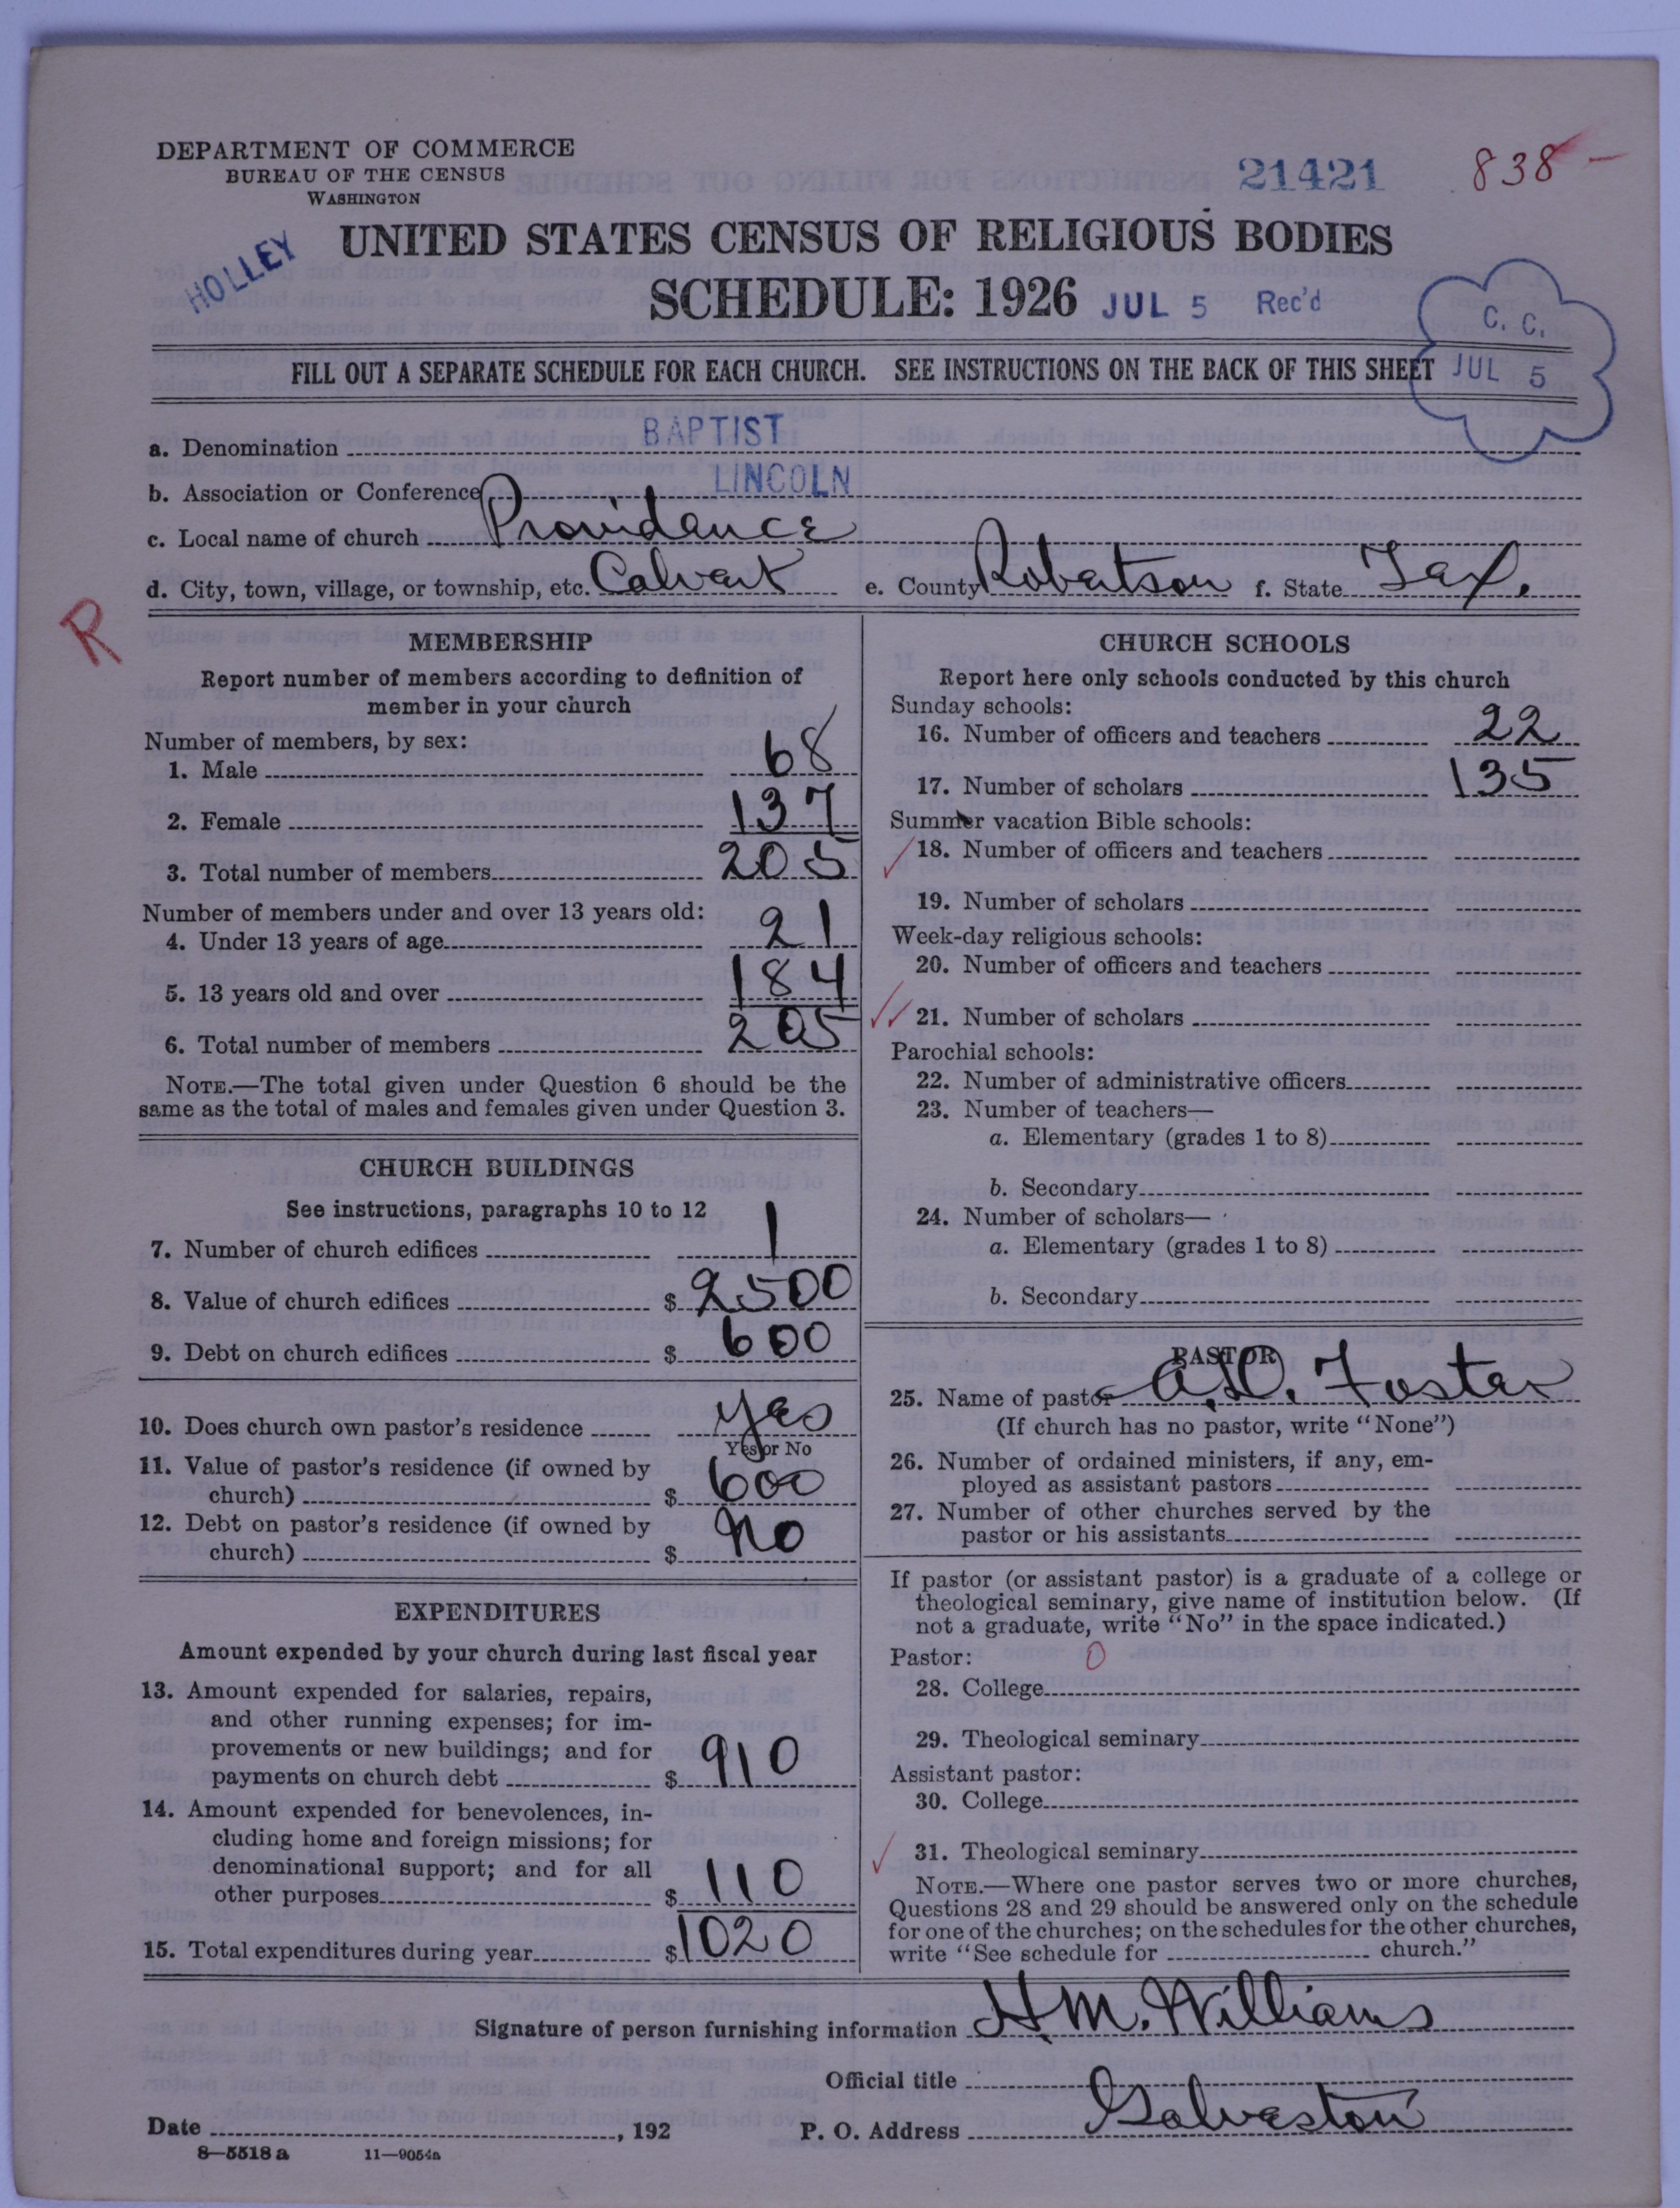 DEPARTMENT OF COMMERCE
BUREAU OF THE CENSUS
WASHINGTON
21421
838 –
HOLLEY
UNITED STATES CENSUS OF RELIGIOUS BODIES
SCHEDULE: 1926 JUL 5 Rec'd
C. C.
JUL 5
FILL OUT A SEPARATE SCHEDULE FOR EACH CHURCH. SEE INSTRUCTIONS ON THE BACK OF THIS SHEET
a. Denomination BAPTIST
b. Association or Conference LINCOLN
c. Local name of church Providance
d. City, town, village, or township, etc. Calvert e. County Robertson f. State Tex.
R
MEMBERSHIP
Report number of members according to definition of
member in your church
Number of members, by sex:
1. Male 68
2. Female 137
3. Total number of members 205
Number of members under and over 13 years old:
4. Under 13 years of age 21
5. 13 years old and over 184
6. Total number of members 205
NOTE.—The total given under Question 6 should be the
same as the total of males and females given under Question 3.
CHURCH BUILDINGS
See instructions, paragraphs 10 to 12
7. Number of church edifices 1
8. Value of church edifices $ 2500
9. Debt on church edifices $ 600
10. Does church own pastor's residence yes
Yes or No
11. Value of pastor's residence (if owned by
church) $ 600
12. Debt on pastor's residence (if owned by
church) $ No
EXPENDITURES
Amount expended by your church during last fiscal year
13. Amount expended for salaries, repairs,
and other running expenses; for im-
provements or new buildings; and for
payments on church debt $ 910
14. Amount expended for benevolences, in-
cluding home and foreign missions; for
denominational support; and for all
other purposes $ 110
15. Total expenditures during year $ 1020
CHURCH SCHOOLS
Report here only schools conducted by this church
Sunday schools:
16. Number of officers and teachers 22
17. Number of scholars 135
Summer vacation Bible schools:
18. Number of officers and teachers
19. Number of scholars
Week-day religious schools:
20. Number of officers and teachers
21. Number of scholars
Parochial schools:
22. Number of administrative officers
23. Number of teachers—
a. Elementary (grades 1 to 8)
b. Secondary
24. Number of scholars—
a. Elementary (grades 1 to 8)
b. Secondary
PASTOR
25. Name of pastor A.D. Foster
(If church has no pastor, write "None")
26. Number of ordained ministers, if any, em-
ployed as assistant pastors
27. Number of other churches served by the
pastor or his assistants
If pastor (or assistant pastor) is a graduate of a college or
theological seminary, give name of institution below. (If
not a graduate, write "No" in the space indicated.)
Pastor: 0
28. College
29. Theological seminary
Assistant pastor:
30. College
31. Theological seminary
NOTE.—Where one pastor serves two or more churches,
Questions 28 and 29 should be answered only on the schedule
for one of the churches; on the schedules for the other churches,
write "See schedule for church."
Signature of person furnishing information H. M. Williams
Official title
Date , 192 P. O. Address Galveston
8—5518 a 11—9054a